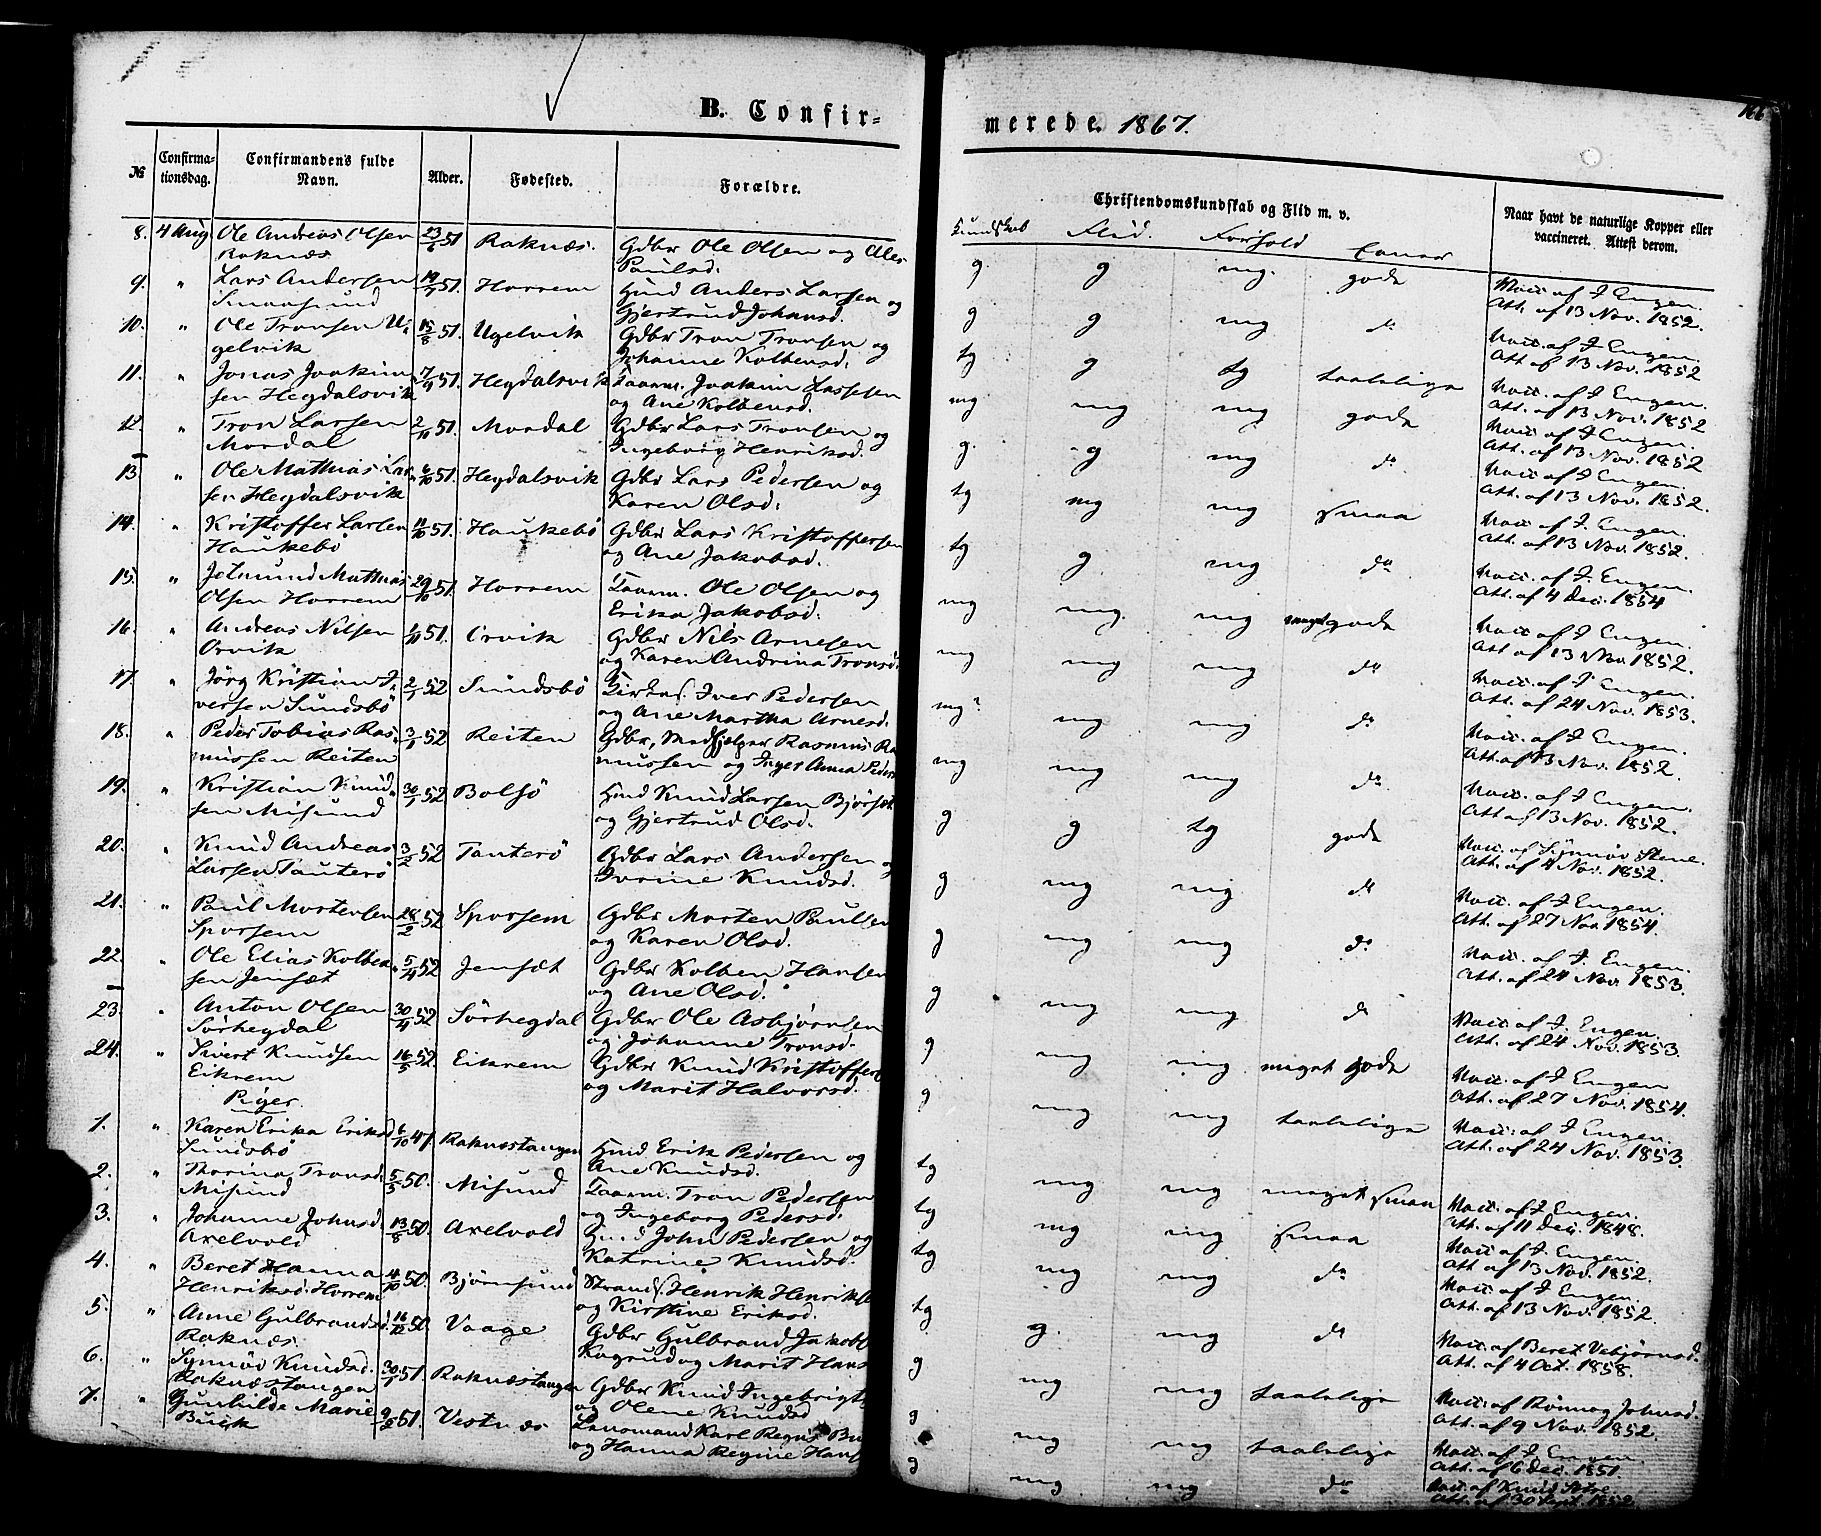 B. Confir-
№ Confirma-tionsdag. Confirmandens fulde Navn. Alder. Fødested. Forældre.
8. 4 Aug Ole Andreas Olsen 23/6 51 Raknæs. Gdbr Ole Olsen og
Raknæs Paulsd.
9. " Lars Andersen 19/7 51. Horrem Hmd Anders Larsen og
Gjertrud Johansd.
10. " Ole Tronsen U- 15/8 51. Ugelvik Gdbr Tron Tronsen og
gelvik Johanne Kolbensd.
11. " Jonas Joakim- 17/9 51. Hegdalsvik Joakim Lassesen
sen Hegdalsvik og Ane Kolbensd.
12. " Tron Larsen 2/10 51. Mordal Gdbr Lars Tronsen og
Mordal Ingeborg Henriksd.
13 " Ole Mathias Lar- 6/10 51. Hegdalsvik Gdbr Lars Pedersen og
sen Hegdalsvik Karen Olsd.
14. " Kristoffer Larsen 11/10 51. Haukebö Gdbr Lars Kristoffersen
Haukebö og Ane Jakobsd.
15. " Mathias 29/10 51. Horrem Ole Olsen og
Olsen Horrem Erika Jakobsd.
16. " Andreas Nilsen 51. Orvik Gdbr Nils Arnesen
Orvik og Karen Andrina Tronsd.
17. " Jörg Kristian I- 2/1 52 Sundsbö Iver Pedersen
versen Sundsbö og Ane Martha Arnesd.
18. " Peder Tobias Ras- 3/1 52 Reiten Gdbr, Medhjelper Rasmus Ra
mussen Reiten mussen og Inger Anna Peders
19. " Kristian Knud- 30/1 52 Bolsö Hmd Knud Larsen
sen Misund og Gjertrud Olsd.
20. " Knud Andreas 3/2 52 Tauterö Gdbr Lars Andersen og
Larsen Tauterö Ivrine Knudsd.
21. " Paul Mortensen 28/2 52 Sporsem Gdbr Morten Paulsen
Sporsem og Karen Olsd.
22. " Ole Elias Kolben- 5/4 52 Jemsæt Gdbr Kolben Hansen
sen Jemsæt og Ane Olsd.
23. " Anton Olsen 30/4 52 Sörhegdal Gdbr Ole Asbjørnsen
Sörhegdal og Johanne Tronsd.
24. " Sivert Knudsen 16/5 52. Eikrem Gdbr Knud Kristoffers
Eikrem og Marit Halvorsd.
Piger.
1. " Karen Erika Eriksd 6/10 47. Raknæstangen Hmd Erik Pedersen og
Sundsbö Ane Knudsd.
2. " Thorina Tronsd. 5/5 50. Misund Tron Pedersen
Misund og Ingeborg Pedersd.
3. " Johanne Johnsd. 13/8 50. Axelvold Hmd John Pedersen og
Axelvold Katrine Knudsd.
4. " Beret Hanna 4/10 50. Björnsund Strands. Henrik Henrikse
Henriksd. Horrem og Kirstine Eriksd.
5. " Anne Gulbrandsd. 16/12 50. Vaage Gdbr Gulbrand Jakobs
Raknæs og Marit Hans
6. " Synnöv Knudsd. 30/1 51. Raknæstangen Gdbr Knud Ingebrigts
Raknæstangen og Olene Knudsd
7. " Gunhilde Marie 51. Vestnæs Lensmand Karl
og Hanna Regine Hans
merede. 1867.
166
Christendomskundskab og Flid m. v. Naar havt de naturlige Kopper eller
vaccineret. Attest derom.
Kundskab Flid. Forhold Evner
g. g mg. gode Vacc. af J Engen.
Att. af 13 Nov. 1852.
g g mg do Vacc. af J Engen.
Att. af 13 Nov. 1852
tg g tg taalelige Vacc. af J Engen.
Att. af 13 Nov. 1852
mg mg mg gode Vacc. af J Engen.
Att. af 13 Nov. 1852
g. g mg do. Vacc. af J Engen.
Att. af 13 Nov. 1852.
tg mg mg smaa Vacc. af J. Engen.
Att. af 13 Nov. 1852.
tg g. mg do. Vacc. af J. Engen.
Att. af 4 Dec. 1854
mg mg. mg meget gode Vacc. af J Engen.
Att af 13 Nov 1852.
mg mg mg do Vacc. af J. Engen.
Att. af 24 Nov. 1853.
mg? mg mg do Vacc. af J Engen.
Att. af 13 Nov. 1852.
mg mg mg do. Vacc. af J Engen.
Att af 13 Nov. 1852.
g g tg gode Vacc. af Synnøv Stene.
Att. af 4 Nov. 1852.
g mg mg do Vacc. af J Engen.
Att. af 27 Nov 1854.
g mg mg do Vacc. af J. Engen.
Att. af 24 Nov. 1853.
g mg mg do Vacc. af J. Engen.
Att. af 24 Nov. 1853.
g mg mg meget gode Vacc. af J Engen
Att. af 27 Nov. 1854.
g mg mg taalelige Vacc. af J Engen.
Att. af 24 Nov. 1853.
tg mg mg meget smaa Vacc. af J Engen.
Att. af 11 Dec. 1848.
tg mg mg smaa Vacc. af J. Engen.
Att af 13 Nov. 1852.
tg mg mg do Vacc. af J. Engen.
Att. af 13 Nov. 1852.
tg g. mg do Vacc. af Beret Vebjørnsd.
Att. af 4 Oct. 1858.
g mg mg taalelige Vacc. af Rønnog Johnsd.
Att. af 9 Nov. 1852.
g mg mg taalelige Vacc. af J Engen.
Att. af 6 Dec. 1851
g mg mg do Vacc. af Knud
Att. af 30 Sept. 1852